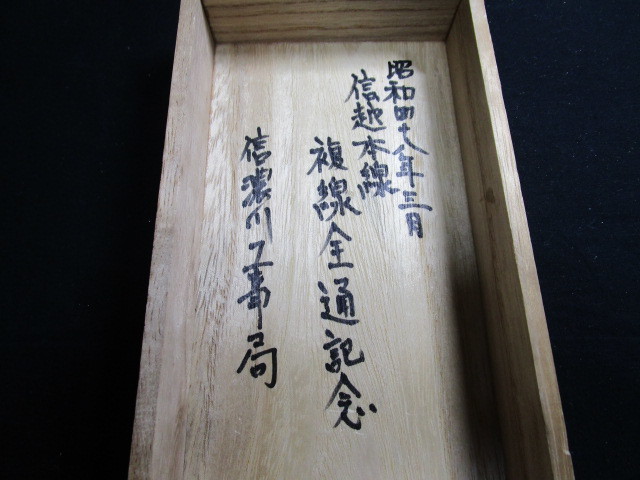 昭和四十八年三月
信越本線
複線全通記念
信濃川工事局